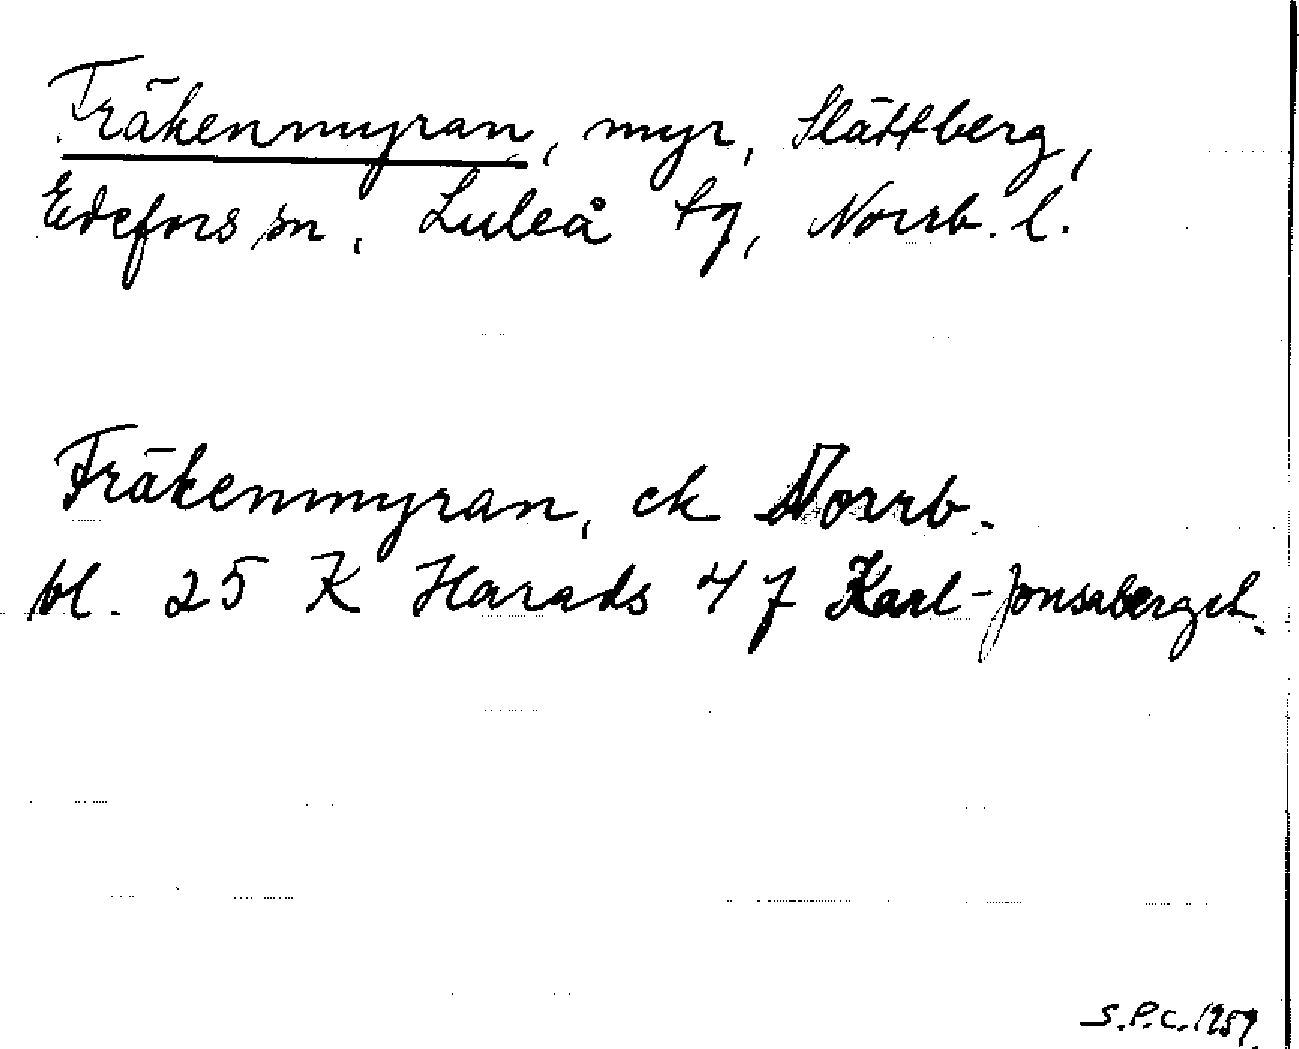 Fräkenmyran, myr, Slättberg,
Edefors sn, Luleå tg, Norrb. l.
Fräkenmyran, ek Norrb.
bl. 25 K Harads 4 f Karl-Jonsaberget.
S.P.C. 1959.